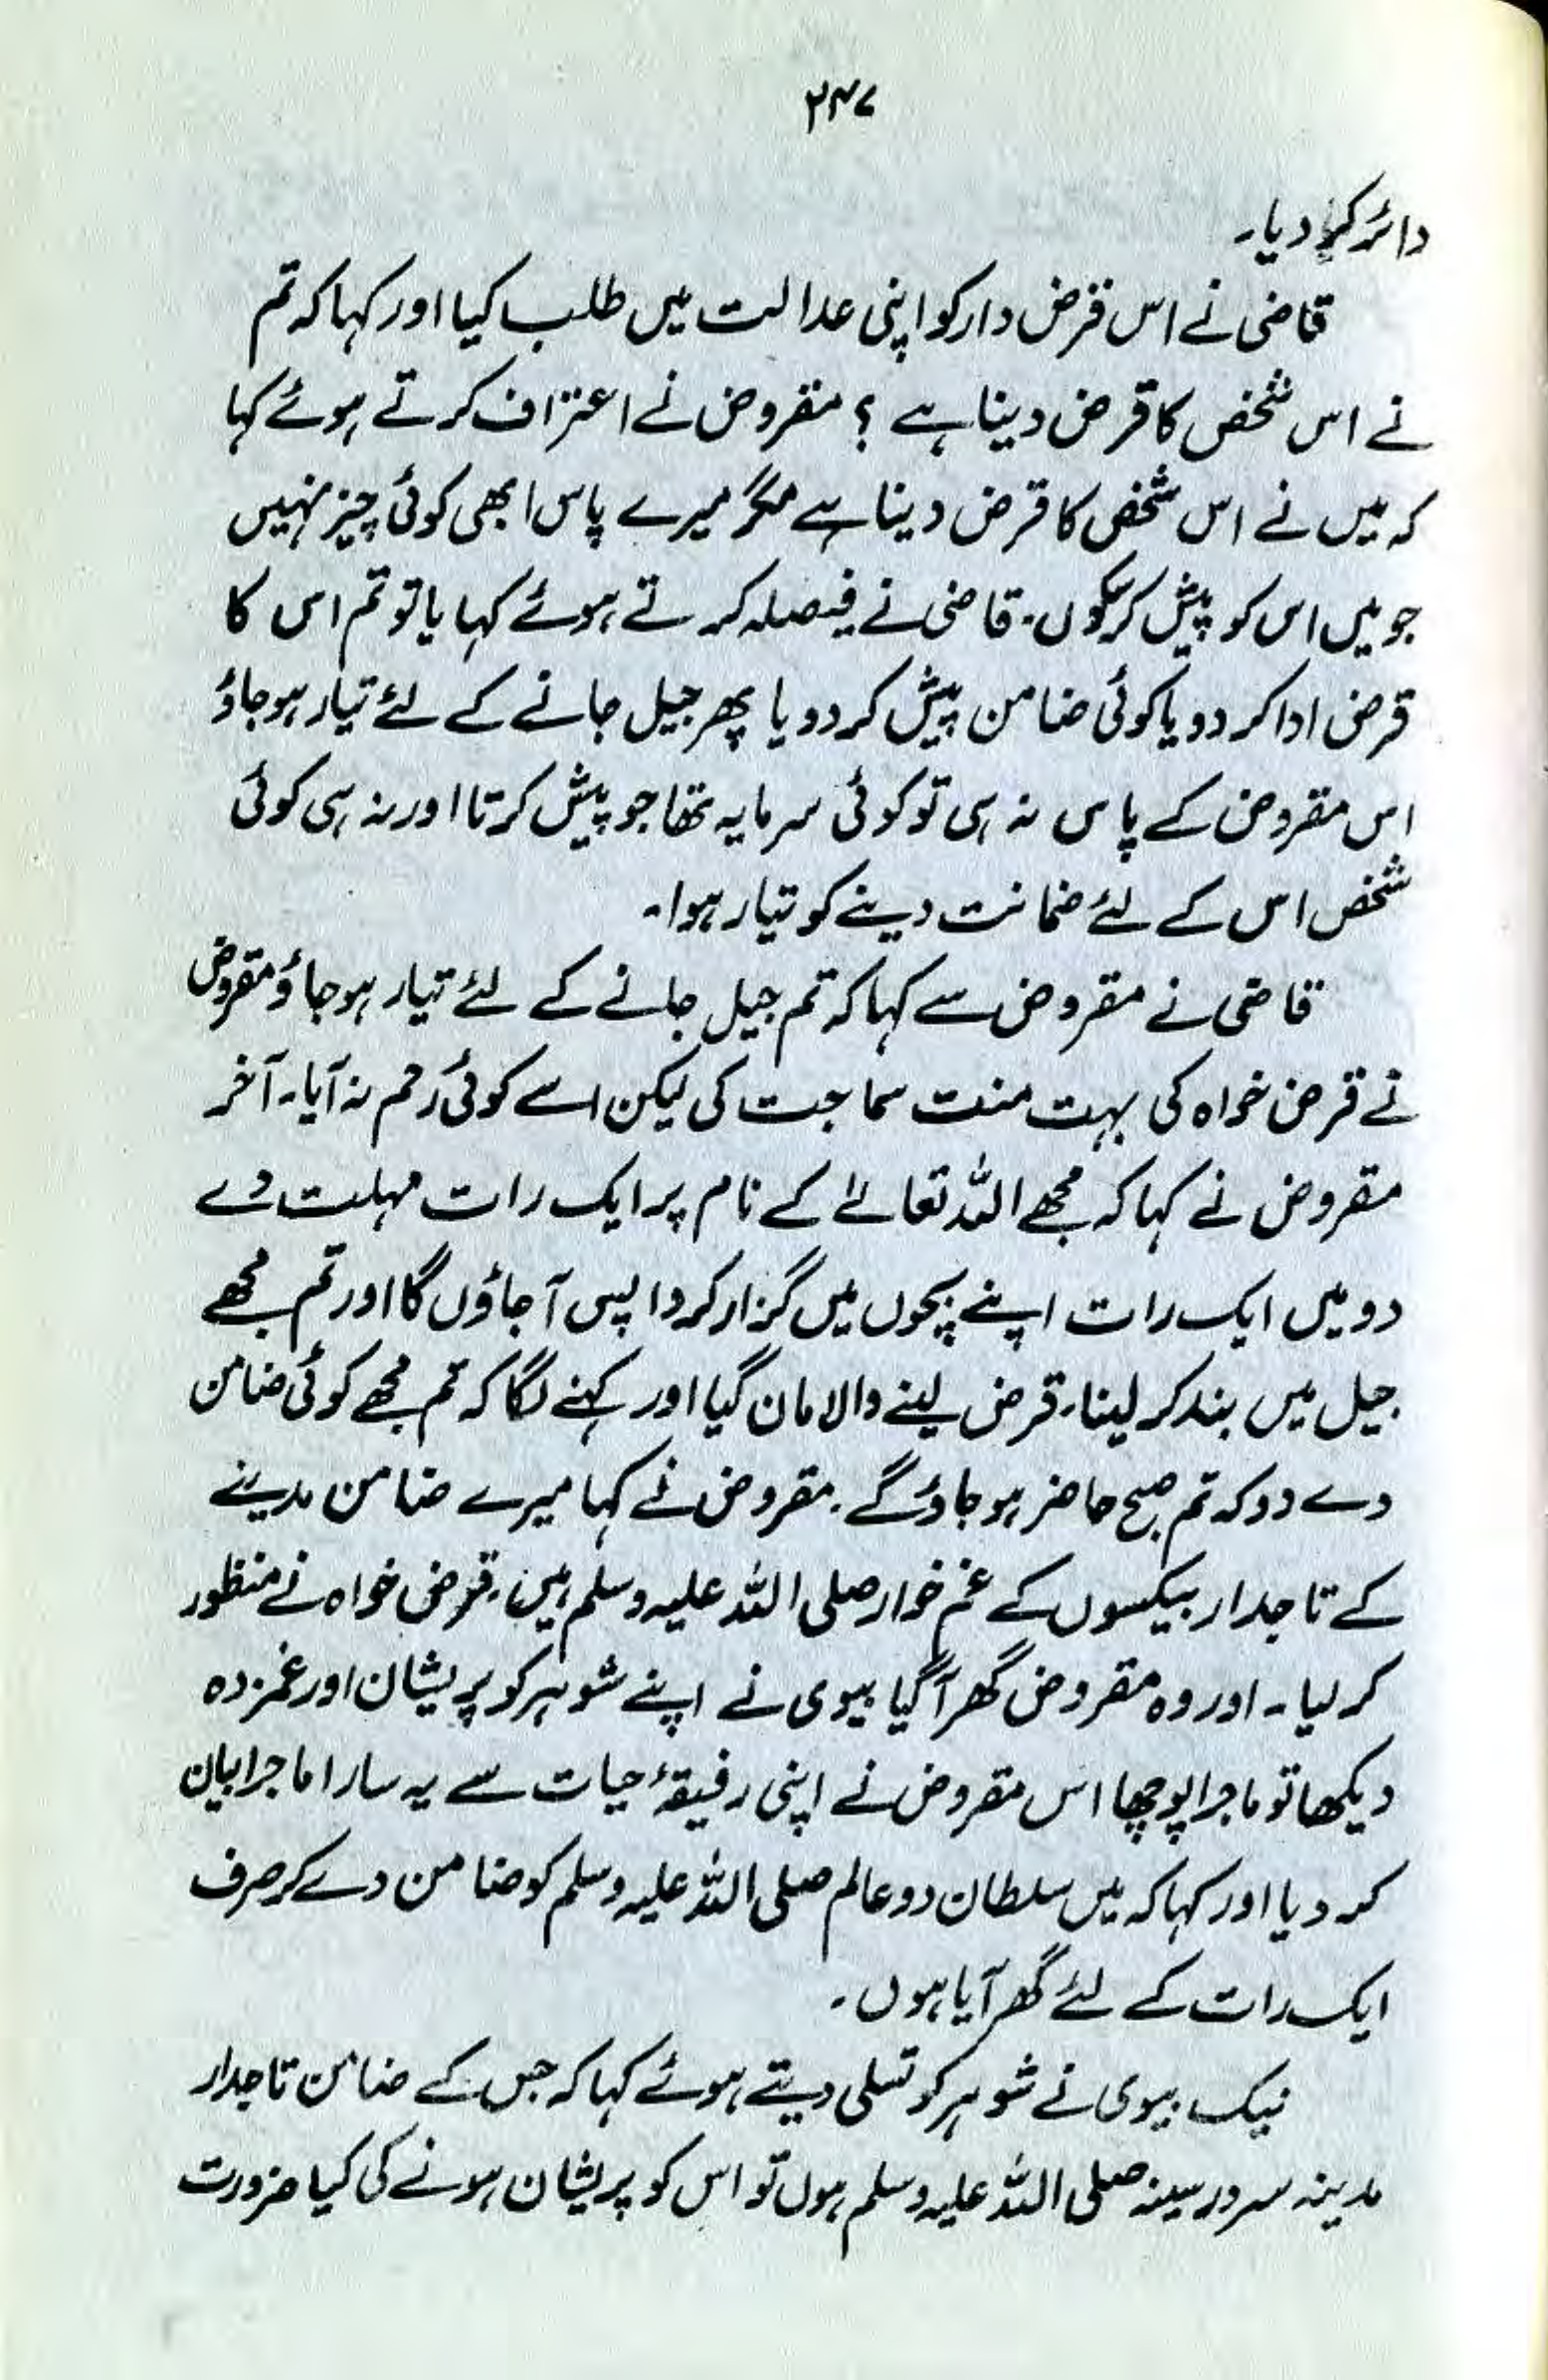 ۲۴۷
دائر کر دیا۔
قاضی نے اس قرض دار کو اپنی عدالت میں طلب کیا اور کہا کہ تم
نے اس شخص کا قرض دینا ہے ؟ مقروض نے اعتراف کرتے ہوئے کہا
کہ میں نے اس شخص کا قرض دینا ہے مگر میرے پاس ابھی کوئی چیز نہیں
جو میں اس کو پیش کر سکوں۔ قاضی نے فیصلہ کرتے ہوئے کہا یا تو تم اس کا
قرض ادا کر دو یا کوئی ضامن پیش کر دو یا پھر جیل جانے کے لئے تیار ہو جاؤ
اس مقروض کے پاس نہ ہی تو کوئی سرمایہ تھا جو پیش کرتا اور نہ ہی کوئی
شخص اس کے لئے ضمانت دینے کو تیار ہوا۔
قاضی نے مقروض سے کہا کہ تم جیل جانے کے لئے تیار ہو جاؤ مقروض
نے قرض خواہ کی بہت منت سماجت کی لیکن اسے کوئی رحم نہ آیا۔ آخر
مقروض نے کہا کہ مجھے اللہ تعالےٰ کے نام پر ایک رات مہلت دے
دو میں ایک رات اپنے بچوں میں گزار کر واپس آ جاؤں گا اور تم مجھے
جیل میں بند کر لینا۔ قرض لینے والا مان گیا اور کہنے لگا کہ تم مجھے کوئی ضامن
دے دو کہ تم صبح حاضر ہو جاؤ گے۔ مقروض نے کہا میرے ضامن مدینے
کے تاجدار بیکسوں کے غم خوار صلی اللہ علیہ وسلم ہیں۔ قرض خواہ نے منظور
کر لیا۔ اور وہ مقروض گھر آ گیا بیوی نے اپنے شوہر کو پریشان اور غمزدہ
دیکھا تو ماجرا پوچھا اس مقروض نے اپنی رفیقۂ حیات سے یہ سارا ماجرا بیان
کر دیا اور کہا کہ میں سلطان دو عالم صلی اللہ علیہ وسلم کو ضامن دے کر صرف
ایک رات کے لئے گھر آیا ہوں۔
نیک بیوی نے شوہر کو تسلی دیتے ہوئے کہا کہ جس کے ضامن تاجدار
مدینہ سرور سینہ صلی اللہ علیہ وسلم ہوں تو اس کو پریشان ہونے کی کیا ضرورت